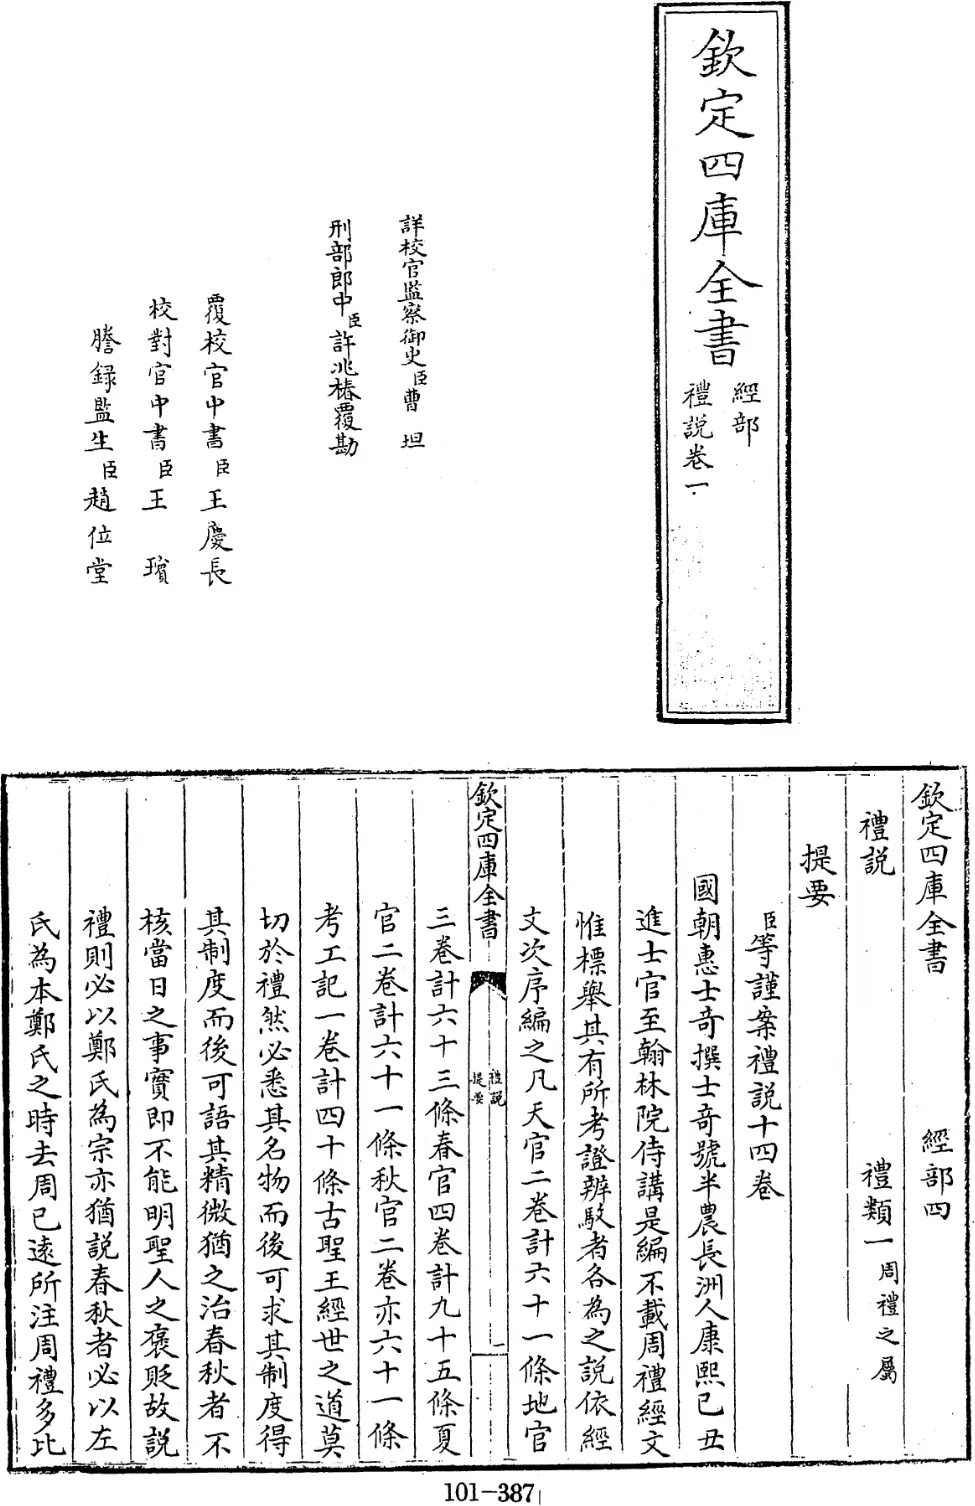 欽定四庫全書
經部
禮説卷一
詳校官監察御史臣曹坦
刑部郎中臣許兆椿覆勘
覆校官中書臣王慶長
校對官中書臣王璸
謄録監生臣趙位堂
欽定四庫全書 經部四
禮説 禮類一周禮之屬
提要
臣等謹案禮説十四卷
國朝惠士奇撰士奇號半農長洲人康熙己丑
進士官至翰林院侍講是編不載周禮經文
惟標舉其有所考證辨駁者各為之説依經
文次序編之凡天官二卷計六十一條地官
欽定四庫全書
禮説
提要
一
三卷計六十三條春官四卷計九十五條夏
官二卷計六十一條秋官二卷亦六十一條
考工記一卷計四十條古聖王經世之道莫
切於禮然必悉其名物而後可求其制度得
其制度而後可語其精微猶之治春秋者不
核當日之事實即不能明聖人之襃貶故説
禮則必以鄭氏為宗亦猶説春秋者必以左
氏為本鄭氏之時去周已遠所注周禮多比
101-387